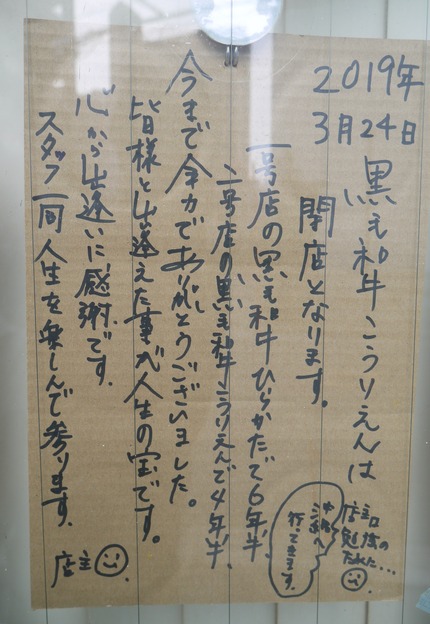 2019年
3月24日
黒毛和牛こうりえんは
閉店となります。
一号店の黒毛和牛ひらかたで6年半、
二号店の黒毛和牛こうりえんで4年半、
今まで全力でありがとうございました。
皆様と出逢えた事が人生の宝です。
心から出逢いに感謝です。
スタッフ一同人生を楽しんで参ります。
店主
店主
行ってきます。